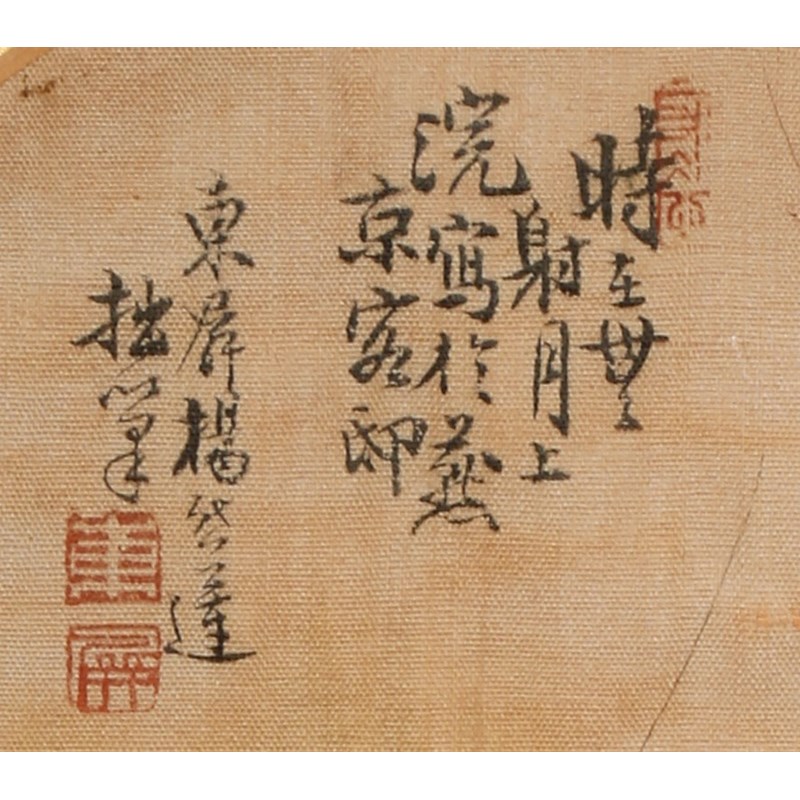 時在無
射月上
浣寫於燕
京客邸
東屏楊
拙筆